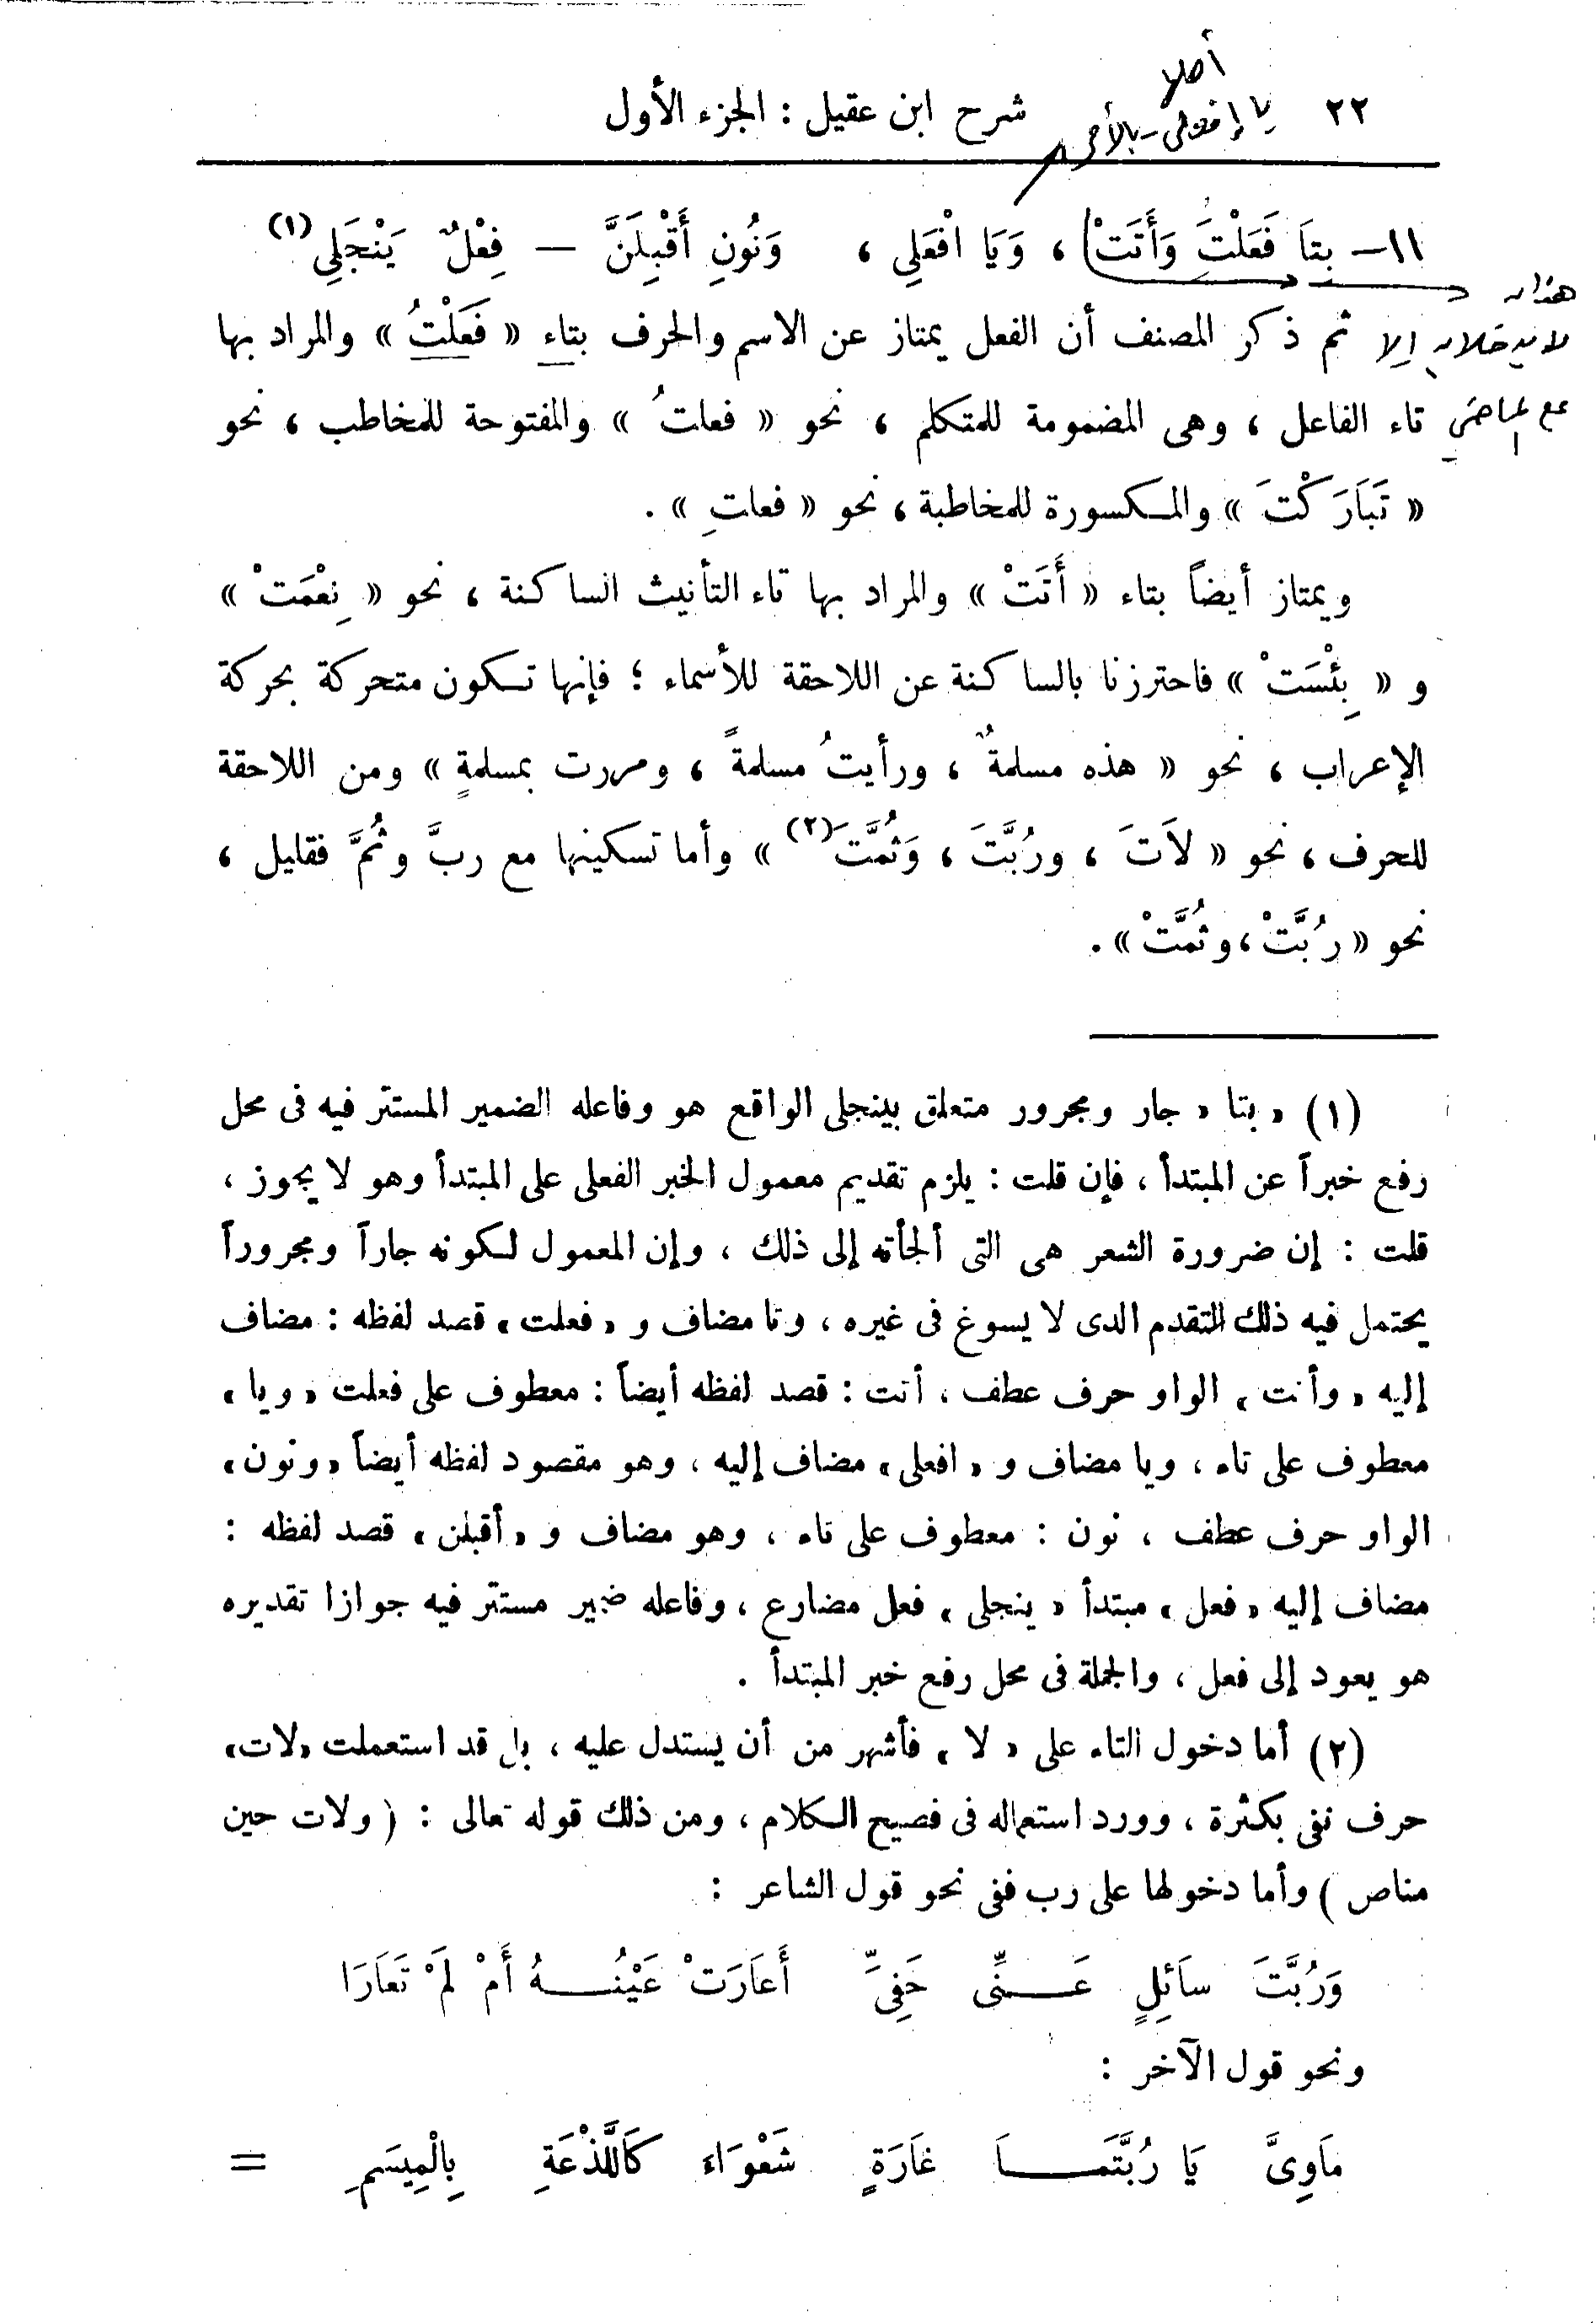 ٢٢ شرح ابن عقيل : الجزء الأول
١١– بِتَا فَعَلْتَ وَأَتَتْ ، وَيَا افْعَلِي ، وَنُونِ أَقْبِلَنَّ – فِعْلٌ يَنْجَلِي (١)
هذان
لا يدخلان إلا
مع الماضي
ثم ذكر المصنف أن الفعل يمتاز عن الاسم والحرف بتاء « فَعَلْتُ » والمراد بها
تاء الفاعل ، وهى المضمومة للمتكلم ، نحو « فعلتُ » والمفتوحة للمخاطب ، نحو
« تَبَارَكْتَ » والمكسورة للمخاطبة ، نحو « فعلتِ » .
ويمتاز أيضاً بتاء « أَتَتْ » والمراد بها تاء التأنيث الساكنة ، نحو « نِعْمَتْ »
و « بِئْسَتْ » فاحترزنا بالساكنة عن اللاحقة للأسماء ؛ فإنها تكون متحركة بحركة
الإعراب ، نحو « هذه مسلمةٌ ، ورأيتُ مسلمةً ، ومررت بمسلمةٍ » ومن اللاحقة
للحرف ، نحو « لاَتَ ، ورُبَّتَ ، وَثُمَّتَ (٢) » وأما تسكينها مع ربَّ وثُمَّ فقليل ،
نحو « رُبَّتْ ، وثُمَّتْ » .
(١) « بتا » جار ومجرور متعلق بينجلى الواقع هو وفاعله الضمير المستتر فيه فى محل
رفع خبراً عن المبتدأ ، فإن قلت : يلزم تقديم معمول الخبر الفعلى على المبتدأ وهو لا يجوز ،
قلت : إن ضرورة الشعر هى التى ألجأته إلى ذلك ، وإن المعمول لكونه جاراً ومجروراً
يحتمل فيه ذلك التقدم الذى لا يسوغ فى غيره ، وتا مضاف و « فعلت » قصد لفظه : مضاف
إليه « وأتت » الواو حرف عطف ، أتت : قصد لفظه أيضاً : معطوف على فعلت « ويا »
معطوف على تاء ، ويا مضاف و « افعلى » مضاف إليه ، وهو مقصود لفظه أيضاً « ونون »
الواو حرف عطف ، نون : معطوف على تاء ، وهو مضاف و « أقبلن » قصد لفظه :
مضاف إليه « فعل » مبتدأ « ينجلى » فعل مضارع ، وفاعله ضمير مستتر فيه جوازا تقديره
هو يعود إلى فعل ، والجملة فى محل رفع خبر المبتدأ .
(٢) أما دخول التاء على « لا » فأشهر من أن يستدل عليه ، بل قد استعملت « لات »
حرف نفى بكثرة ، وورد استعماله فى فصيح الكلام ، ومن ذلك قوله تعالى : ( ولات حين
مناص ) وأما دخولها على رب ففى نحو قول الشاعر :
وَرُبَّتَ سَائِلٍ عَنِّى حَفِىٍّ أَعَارَتْ عَيْنُهُ أَمْ لَمْ تَعَارَا
ونحو قول الآخر :
مَاوِىَّ يَا رُبَّتَمَا غَارَةٍ شَعْوَاءَ كَاللَّذْعَةِ بِالْمِيسَمِ =